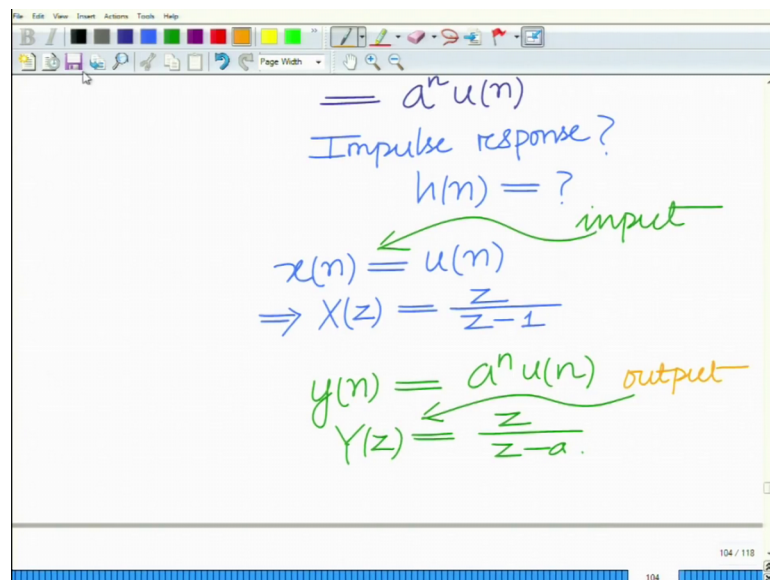 File Edit View Insert Actions Tools Help
B I
Page Width
= aⁿ u(n)
Impulse response?
h(n) = ?
input
x(n) = u(n)
⇒ X(z) = z / (z-1)
y(n) = aⁿ u(n) output
Y(z) = z / (z-a).
104 / 118
104